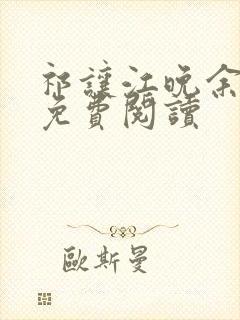 祁讓江晚余
免費閱讀
歐斯曼